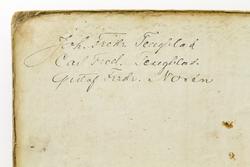 Joh. Fredr Tengblad
Carl Fred. Tengblad.
Gustaf Fredr. Norén